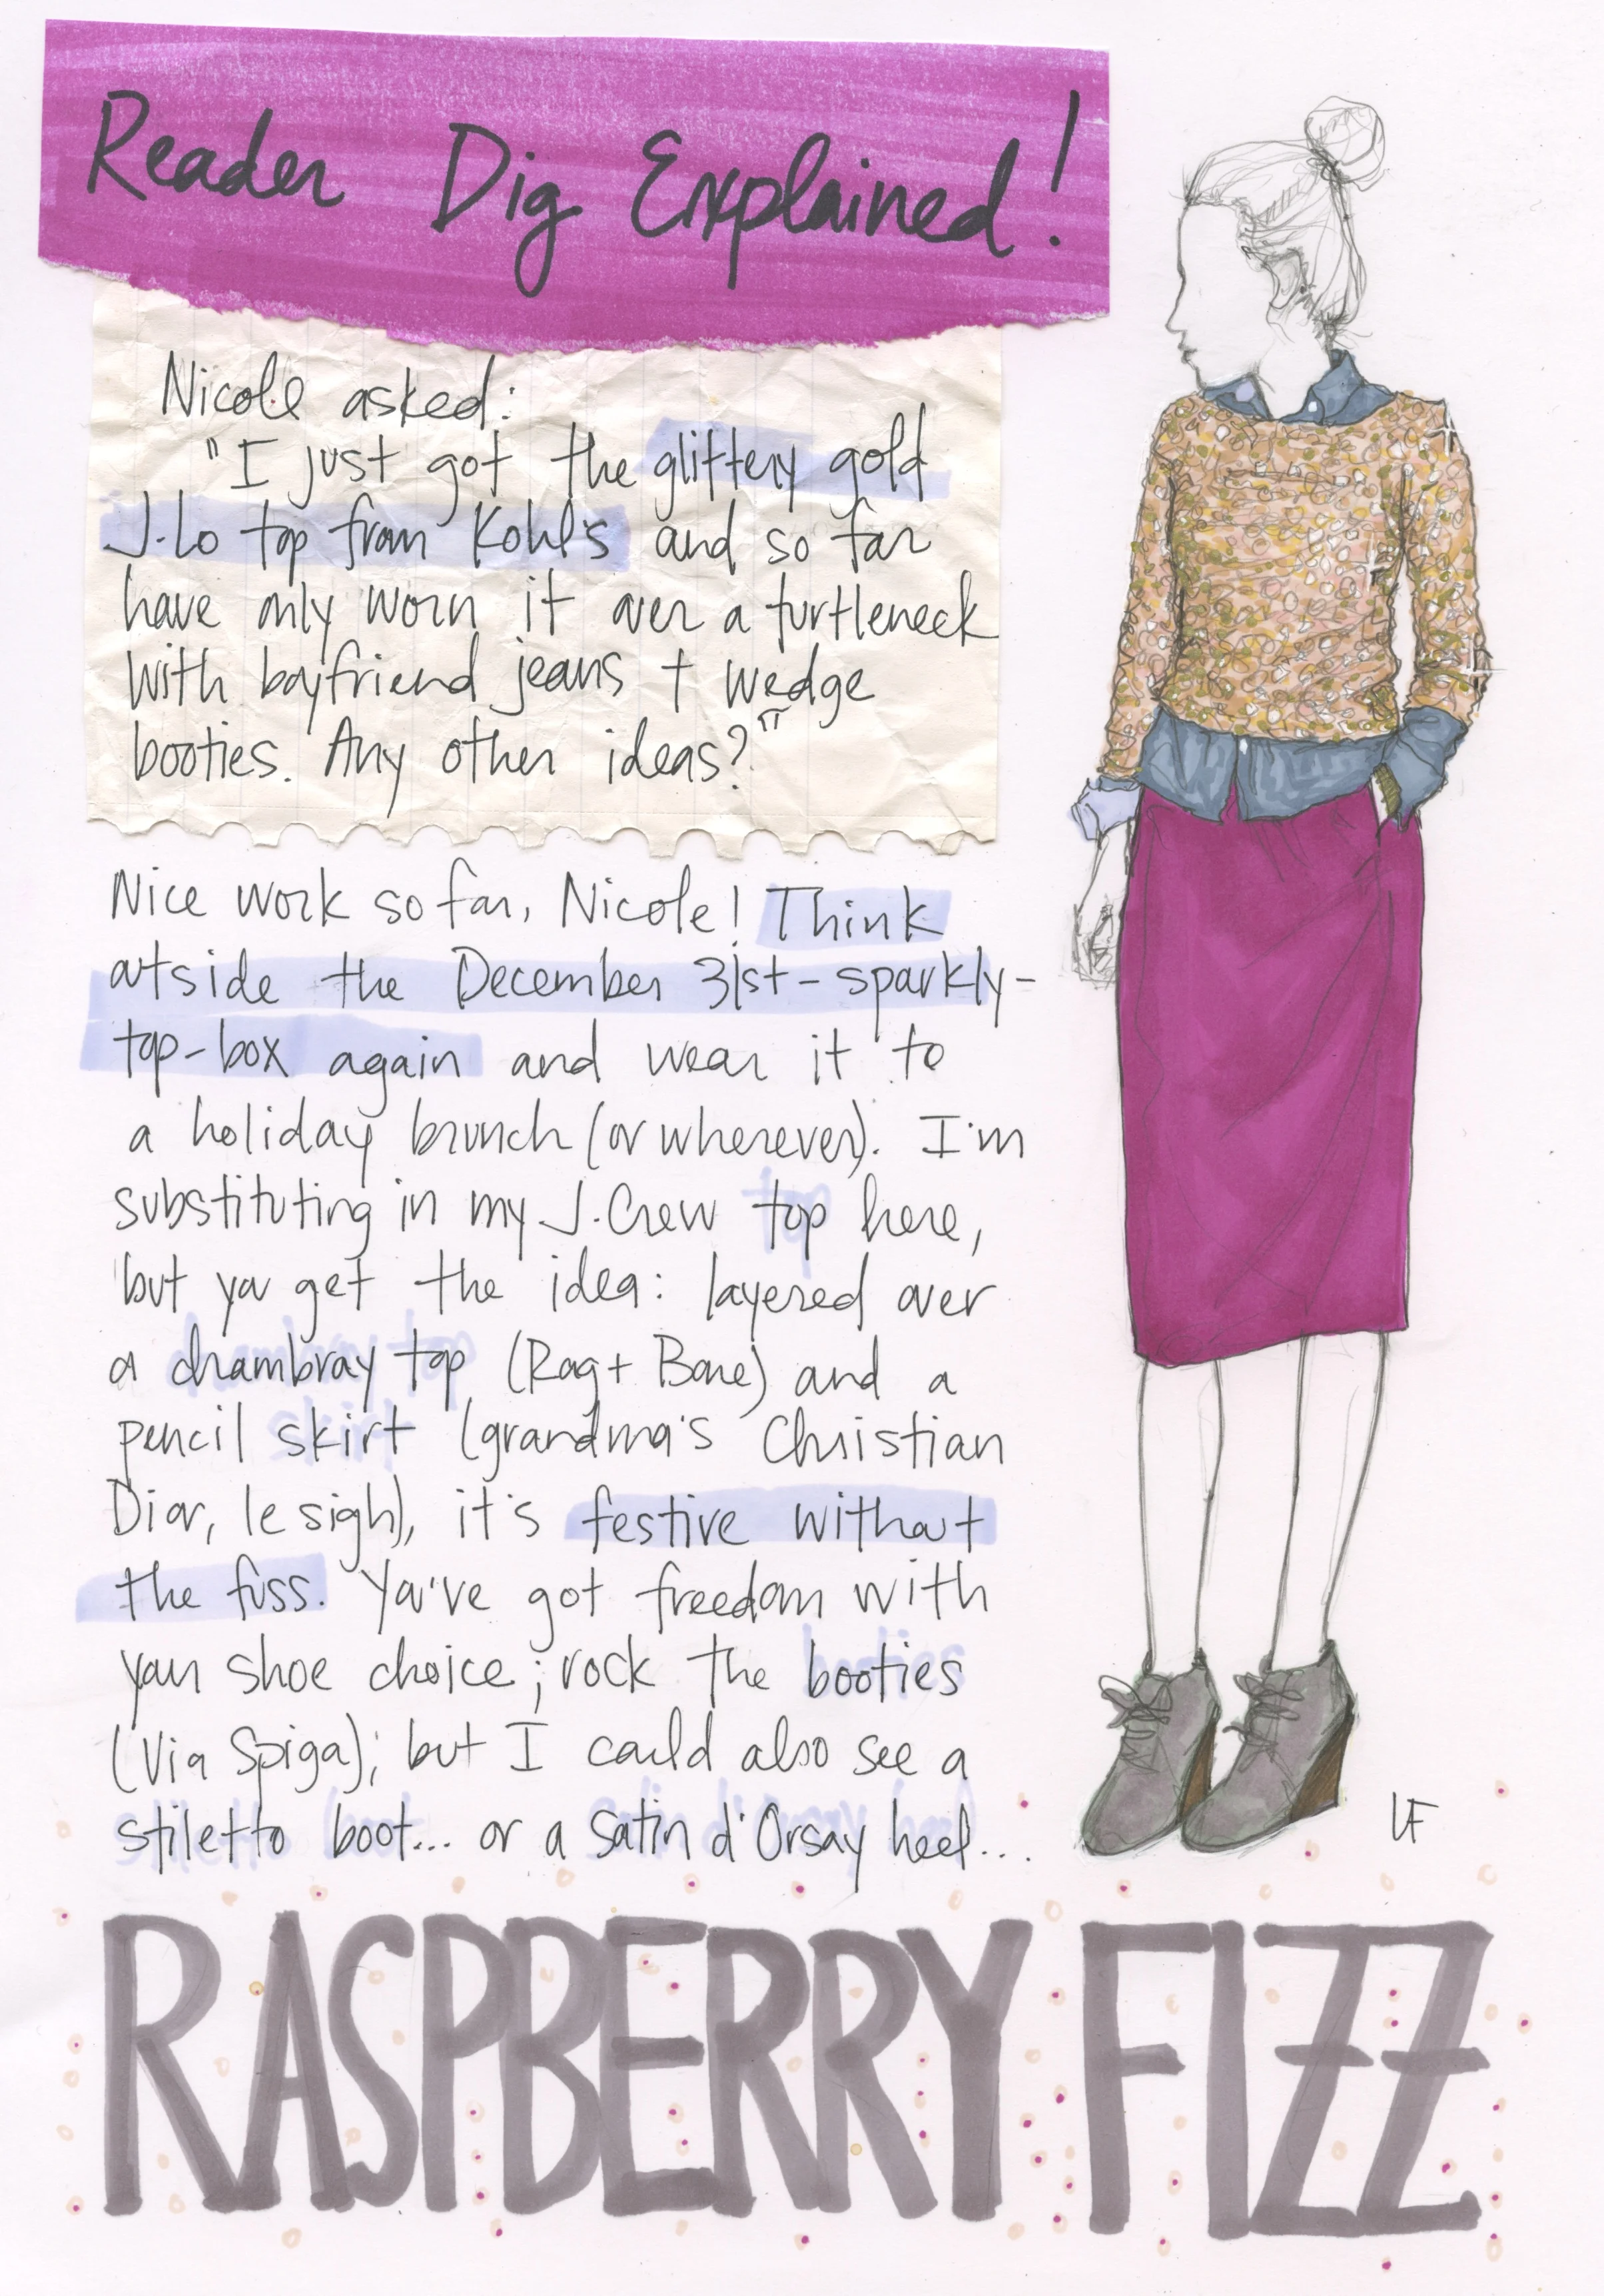 Reader Dig Explained!
Nicole asked:
"I just got the glittery gold
J.Lo top from Kohl's and so far
have only worn it over a turtleneck
with boyfriend jeans + wedge
booties. Any other ideas?"
Nice work so far, Nicole! Think
outside the December 31st-sparkly-
top-box again and wear it to
a holiday brunch (or wherever). I'm
substituting in my J.Crew top here,
but you get the idea: layered over
a chambray top (Rag + Bone) and a
pencil skirt (grandma's Christian
Dior, le sigh), it's festive without
the fuss. You've got freedom with
your shoe choice; rock the booties
(Via Spiga); but I could also see a
stiletto boot... or a satin d'Orsay heel...
LF
RASPBERRY FIZZ